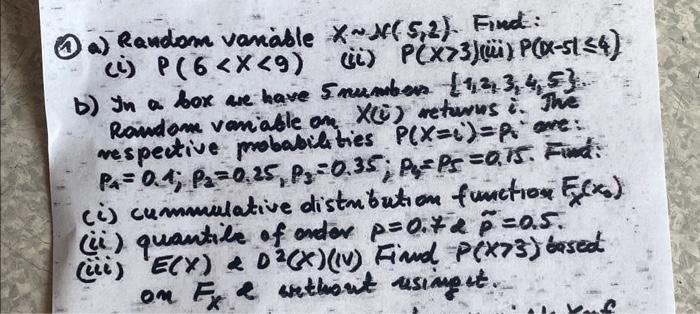 ① a) Random variable X~N(5,2). Find:
(i) P(6<X<9) (ii) P(X>3) (iii) P(|X-5|≤4)
b) In a box we have 5 numbers {1,2,3,4,5}.
Random variable on X(i) returns i. The
respective probabilities P(X=i)=Pi are:
P1=0.1; P2=0.25, P3=0.35; P4=P5=0.15. Find:
(i) cummulative distribution function Fx(x0)
(ii) quantile of order p=0.7 & p̃=0.5.
(iii) E(X) & D²(X) (iv) Find P(X>3) based
on Fx & without using it.